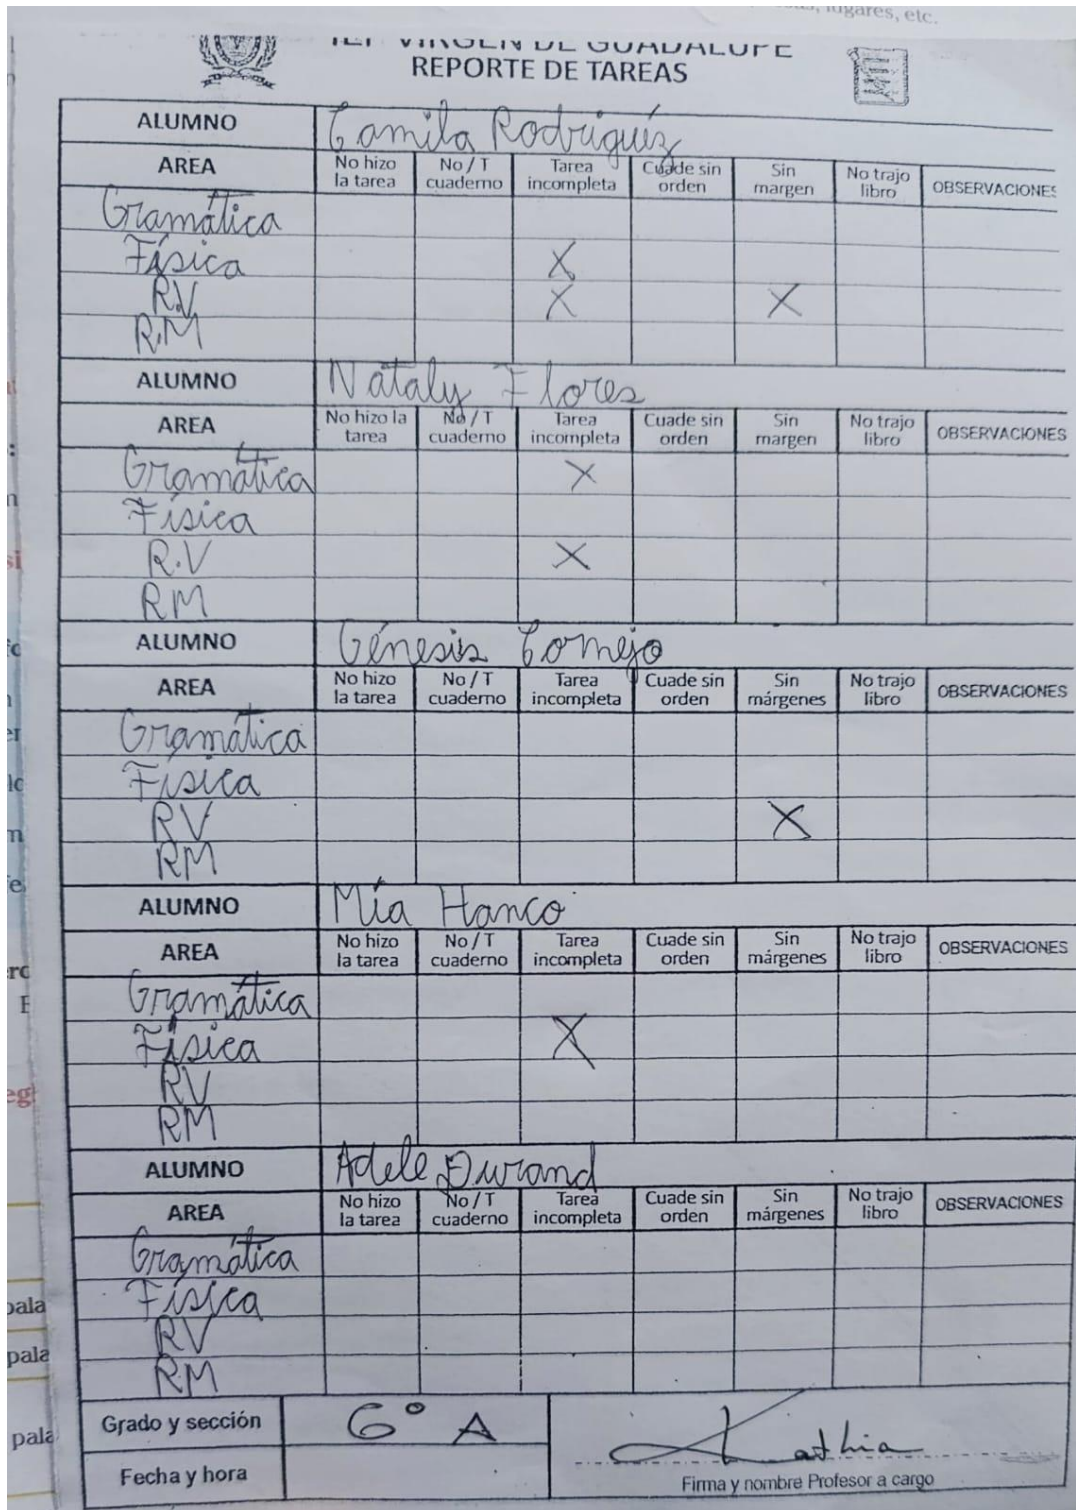 lugares, etc.
IEP VIRGEN DE GUADALUPE
REPORTE DE TAREAS
ALUMNO Camila Rodriguéz
AREA No hizo la tarea No / T cuaderno Tarea incompleta Cuade sin orden Sin margen No trajo libro OBSERVACIONES
Gramática
Física X
R.V X X
R.M
ALUMNO Nataly Flores
AREA No hizo la tarea No / T cuaderno Tarea incompleta Cuade sin orden Sin margen No trajo libro OBSERVACIONES
Gramática X
Física
R.V X
RM
ALUMNO Génesis Cornejo
AREA No hizo la tarea No / T cuaderno Tarea incompleta Cuade sin orden Sin márgenes No trajo libro OBSERVACIONES
Gramática
Física
RV X
RM
ALUMNO Mía Hanco
AREA No hizo la tarea No / T cuaderno Tarea incompleta Cuade sin orden Sin márgenes No trajo libro OBSERVACIONES
Gramática
Física X
RV
RM
ALUMNO Adele Durand
AREA No hizo la tarea No / T cuaderno Tarea incompleta Cuade sin orden Sin márgenes No trajo libro OBSERVACIONES
Gramática
Física
RV
RM
Grado y sección 6° A Kathia
Fecha y hora Firma y nombre Profesor a cargo